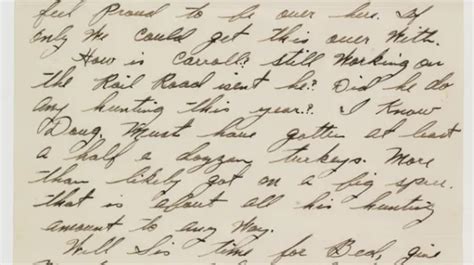 feel Proud to be over here. If
only we could get this over with.
How is Carroll? still working on
the Rail Road isent he? Did he do
any hunting this year? I Know
Doug. Must have gotten at least
a half a dozzen turkeys. More
than likely got on a big spree.
that is about all his hunting
amount to any Way.
Well Sis time for Bed, give